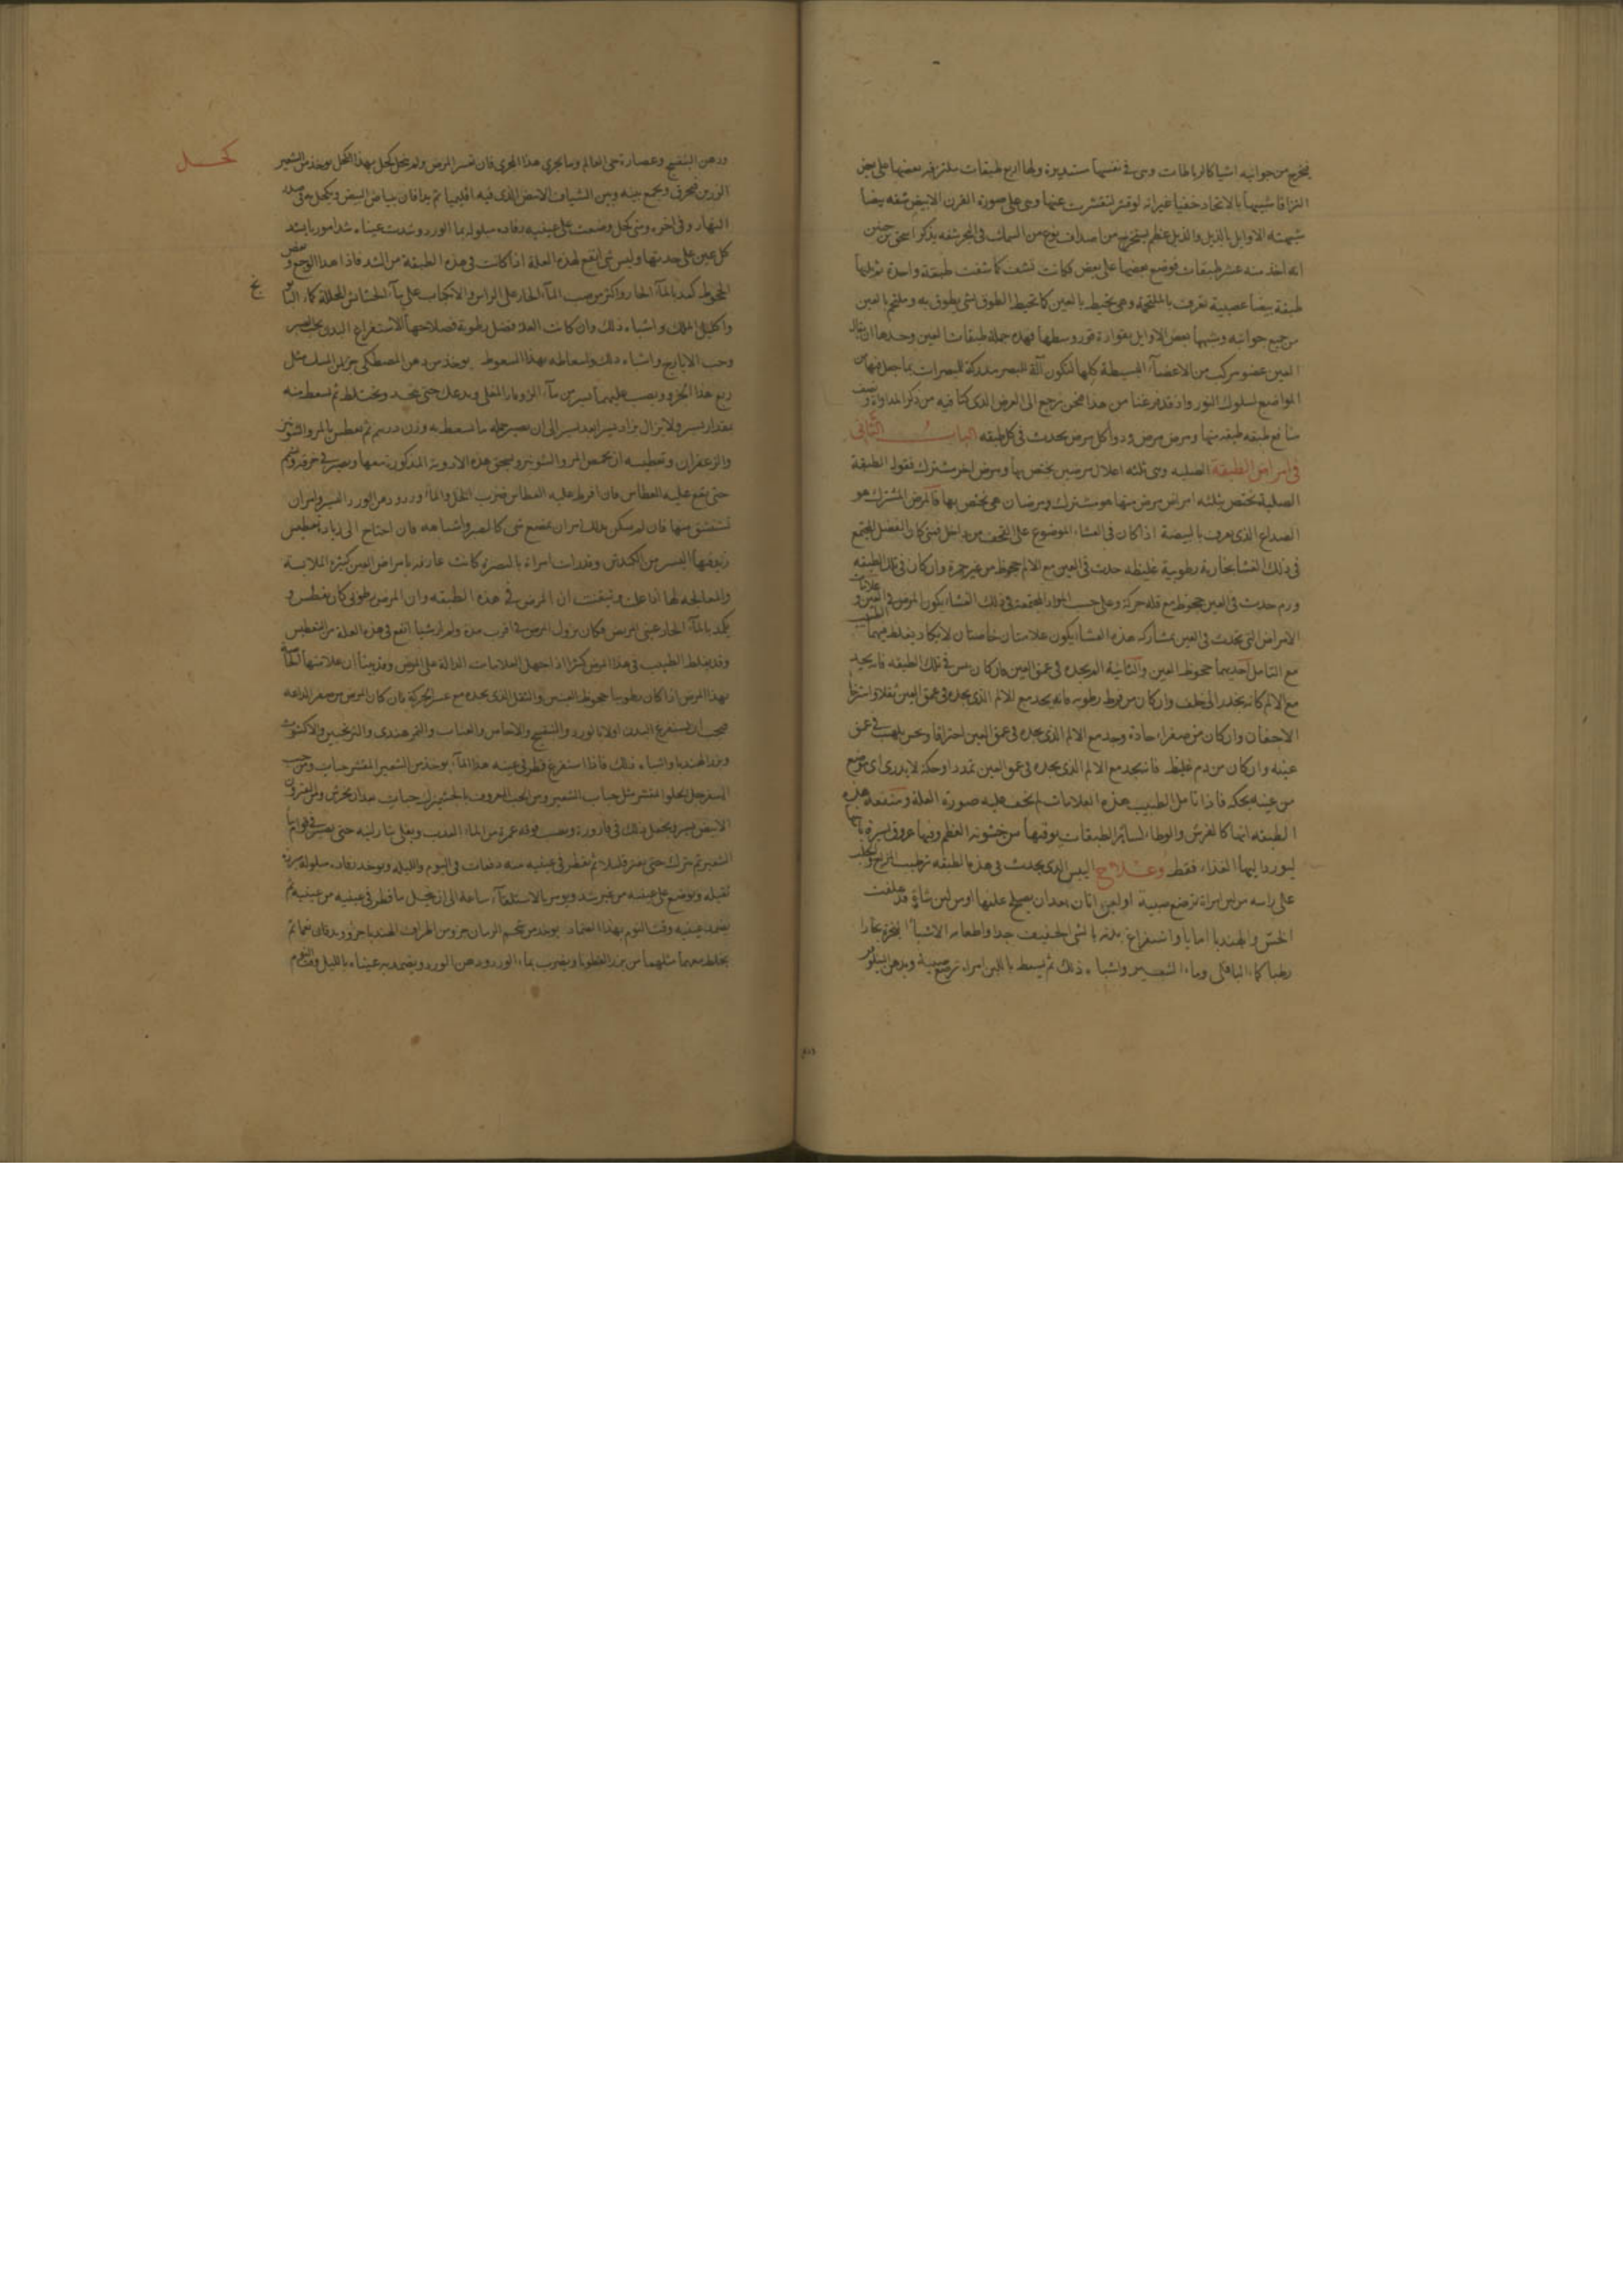 يخرج من جوانبه اشيا كالرباطات وهى فى نفسها مستديرة ولها اربع طبقات ملتزقة بعضها على بعض
التزاقا شبيها بالاتحاد خفيا غير انه لو قشر لتقشرت عنها وهى على صورة القرن الابيض شفه بيضا
شبهته الاوايل بالذبل والذبل عظم يستخرج من اصداف نوع من السمك فى البحر شفه يذكر اسحق بن حنين
انه اخذ منه عشر طبقات فوضع بعضها على بعض فكانت تشف كما شفت طبقة واحدة
طبقة بيضا عصبية تعرف بالملتحمة وهى تحيط بالعين كما تحيط الطوق بشى يطوق به وملتحم بالعين
من جميع جوانبه وشبهها بعض الاوايل بقوارة قور وسطها فهذه جملة طبقات العين وحدها ان يقال
العين عضو مركب من الاعضآ البسيطة كلها لتكون آلة للبصر مدركة للمبصرات بما جعل فيها من
المواضع لسلوك النور واذ قد فرغنا من هذا فنحن نرجع الى الغرض الذى كنا فيه من ذكر المداواة ونصف
منافع طبقه طبقه منها ومرض مرض ودوآ كل مرض يحدث فى كل طبقه الباب الثانى
فى امراض الطبقة الصلبه وهى ثلثه اعلال مرضين يختص بها ومرض اخر مشترك فنقول الطبقة
الصلبة تختص بثلثه امراض مرض منها هو مشترك ومرضان هى تختص بها فالمرض المشترك هو
الصداع الذى يعرف بالبيضة اذا كان فى الغشاء الموضوع على القحف من داخل فمتى كان الفضل المجتمع
فى ذلك الغشا بخارية رطوبية غليظه حدث فى العين مع الالم جحوظ من غير حمرة وان كان فى تلك الطبقه
ورم حدث فى العين جحوظ مع قلة حركة وعلى حسب المواد المجتمعة فى ذلك الغشا يكون المرض فى العين و علامات
الامراض التى تحدث فى العين بمشاركه هذه الغشا يكون علامتان خاصتان لا يكاد يغلط فيهما الطبيب
مع التامل احديهما جحوظ العين والثانية الم يجده فى عمق العين فان كان يبس فى تلك الطبقه فانه يجد
مع الالم كانه يجذب الى خلف وان كان من فرط رطوبه فانه يجد مع الالم الذى يجده فى عمق العين ثقلا واسترخا
الاجفان وان كان من صفراء حادة وجد مع الالم الذى يجده فى عمق العين احتراقا ويحس بلهب فى عمق
عينه وان كان من دم غليظ فانه يجد مع الالم الذى يجده فى عمق العين تمددا وحكة لا يدرى اى موضع
من عينه يحكه فاذا تامل الطبيب هذه العلامات لم يخف عليه صورة العلة ومنفعة هذه
الطبقه انها كالفرش والوطا لسائر الطبقات يوقيها من خشونة العظم وفيها عروق يسيرة
ليورد اليها الغذاء فقط وعلاج اليبس الذى يحدث فى هذه الطبقه ترطيب المزاج والحلب
على راسه من لبن امراة ترضع صبية او لبن اتان بعد ان يصلح علفها او من لبن شاة قد علفت
الخس والهندبا اياما واستفراغ بدنه بالشى الخفيف جدا واطعامه الاشيآ
رطبا كماء الباقلى وماء الشعير واشباه ذلك ثم يسعط باللبن امراة ترضع صبية وبدهن النيلوفر
ودهن البنفسج وعصارة حى العالم وما يجرى هذا المجرى فان تعسر المرض ولم ينحل كحل بهذا الكحل يوخذ من الشعير
كحل
الزرين فيحرق ويجمع بينه وبين الشياف الابيض الذى فيه اقليميا ثم يدافان ببياض البيض ويكحل به فى صدر
النهار وفى اخره ومتى كحل وضعت على عينيه رفاده مبلوله بما الورد وشدت عيناه شدا موربا يشد
كل عين على حدتها وليس شى انفع لهذه العلة اذا كانت فى هذه الطبقة من الشد فاذا هدا الوجع و نقص
الجحوظ كمد بالمآء الحار واكثر من صب المآء الحار على الراس والانكباب على مآء الحشائش المحللة كماء
واكليل الملك واشباه ذلك وان كانت العلة فضل رطوبة فصلاحها الاستفراغ البدن بحب الصبر
وحب الايارج واشباه ذلك واسعاطه بهذا السعوط يوخذ من دهن المصطكى جزو من المسك مثل
ربع هذا الجزو ويصب عليهما يسير من مآء المغلى ويدعك حتى يجمد ويختلط ثم يسعط منه
بمقدار يسير ولا يزال يزاد يسيرا بعد يسير الى ان يصير جمله ما يسعط به وزن درهم ثم يعطس بالمر والشونيز
والزعفران وتعطيسه ان يحمص المر والشونيز ويسحق هذه الادوية المذكورة معها ويصير فى خرقة ويشم
حتى يقع عليه العطاس فان افرط عليه العطاس ضرب الخل والمآء ورد ودهن الورد اليسير وامر ان
يستنشق منها فان لم يسكن بذلك امر ان يمضغ شى كالصبر واشباهه فان احتاج الى زيادة تعطيس
اليسير من الكندش وقد رات امراة بالبصرة كانت عارفه بامراض العين كثيرة الملابسة
والمعالجة لها اذا علت وتيقنت ان المرض فى هذه الطبقه وان المرض رطوبى كان يعطس و
يكمد بالمآء الحار عينى المريض فكان يزول المرض فى اقرب مدة ولم ار شيا انفع فى هذه العلة من التعطيس
وقد يغلط الطبيب فى هذا المرض كثيرا اذا جهل العلامات الدالة على المرض وقد بينا ان علامتها
بهذا المرض اذا كان رطوبيا جحوظ العينين والثقل الذى يجده مع عسر الحركة فان كان المرض من صفرا
فيجب ان يستفرغ البدن اولا بالورد والبنفسج والاجاص والعناب والتمر هندى والترنجبين والاكشوث
وبزر الهندبا واشباه ذلك فاذا استفرغ قطر فى عينه هذا المآء يوخذ من الشعير المقشر حبات ومن حب
السفرجل الحلوا مقشر مثل حبات الشعير ومن الحب المعروف بالحشيزك حبات
الابيض يسير ويجعل ذلك فى قارورة ويصب فوقه غمرة من الماء العذب ويغلى بنار لينه حتى يصير فى قوام
الشعير ثم يترك حتى يفتر قليلا ثم يقطر فى عينيه منه دفعات فى اليوم والليله ويوخذ رفاده مبلوله
ثقيله ويوضع على عينيه من غير شد ويومر بالاستلقآء ساعة الى ان ينحل ما قطر فى عينيه من عينيه ثم
يضمد عينيه وقت النوم بهذا الضماد يوخذ من شحم الرمان جزو ومن اطراف الهندبا جزو ويدقان نعما ثم
يخلط معهما مثلهما من بزر القطونا ويضرب بماء الورد ودهن الورد ويضمد به عيناه بالليل وقت النوم